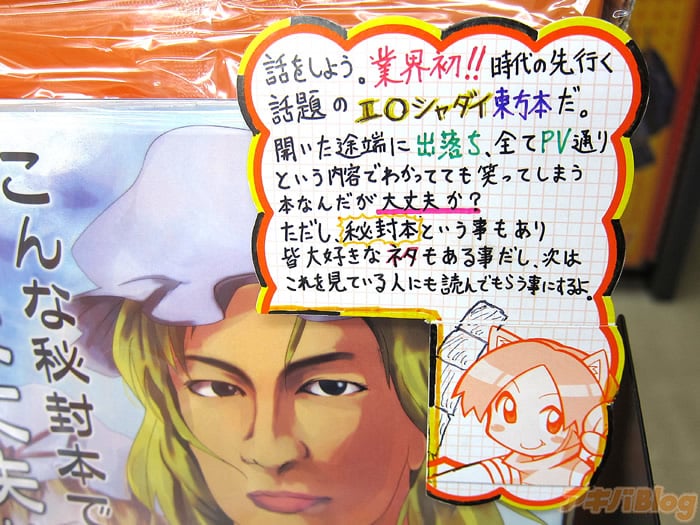 話をしよう。業界初!!時代の先行く
話題のエ〇シャダイ東方本だ。
開いた途端に出落ち、全てPV通り
という内容でわかってても笑ってしまう
本なんだが大丈夫か?
ただし、秘封本という事もあり
皆大好きなネタもある事だし、次は
これを見ている人にも読んでもらう事にするよ。
こんな秘封本で
アキバBlog